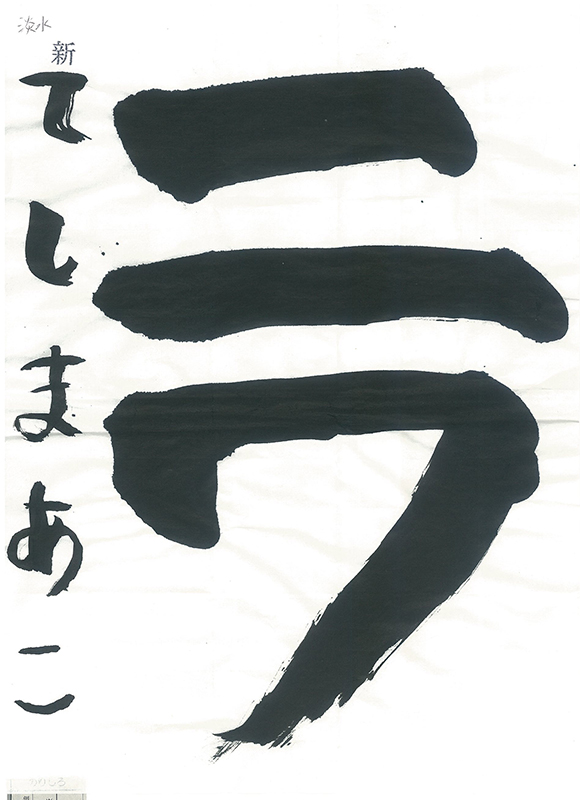 ニワ
淡水
新
てしまあこ